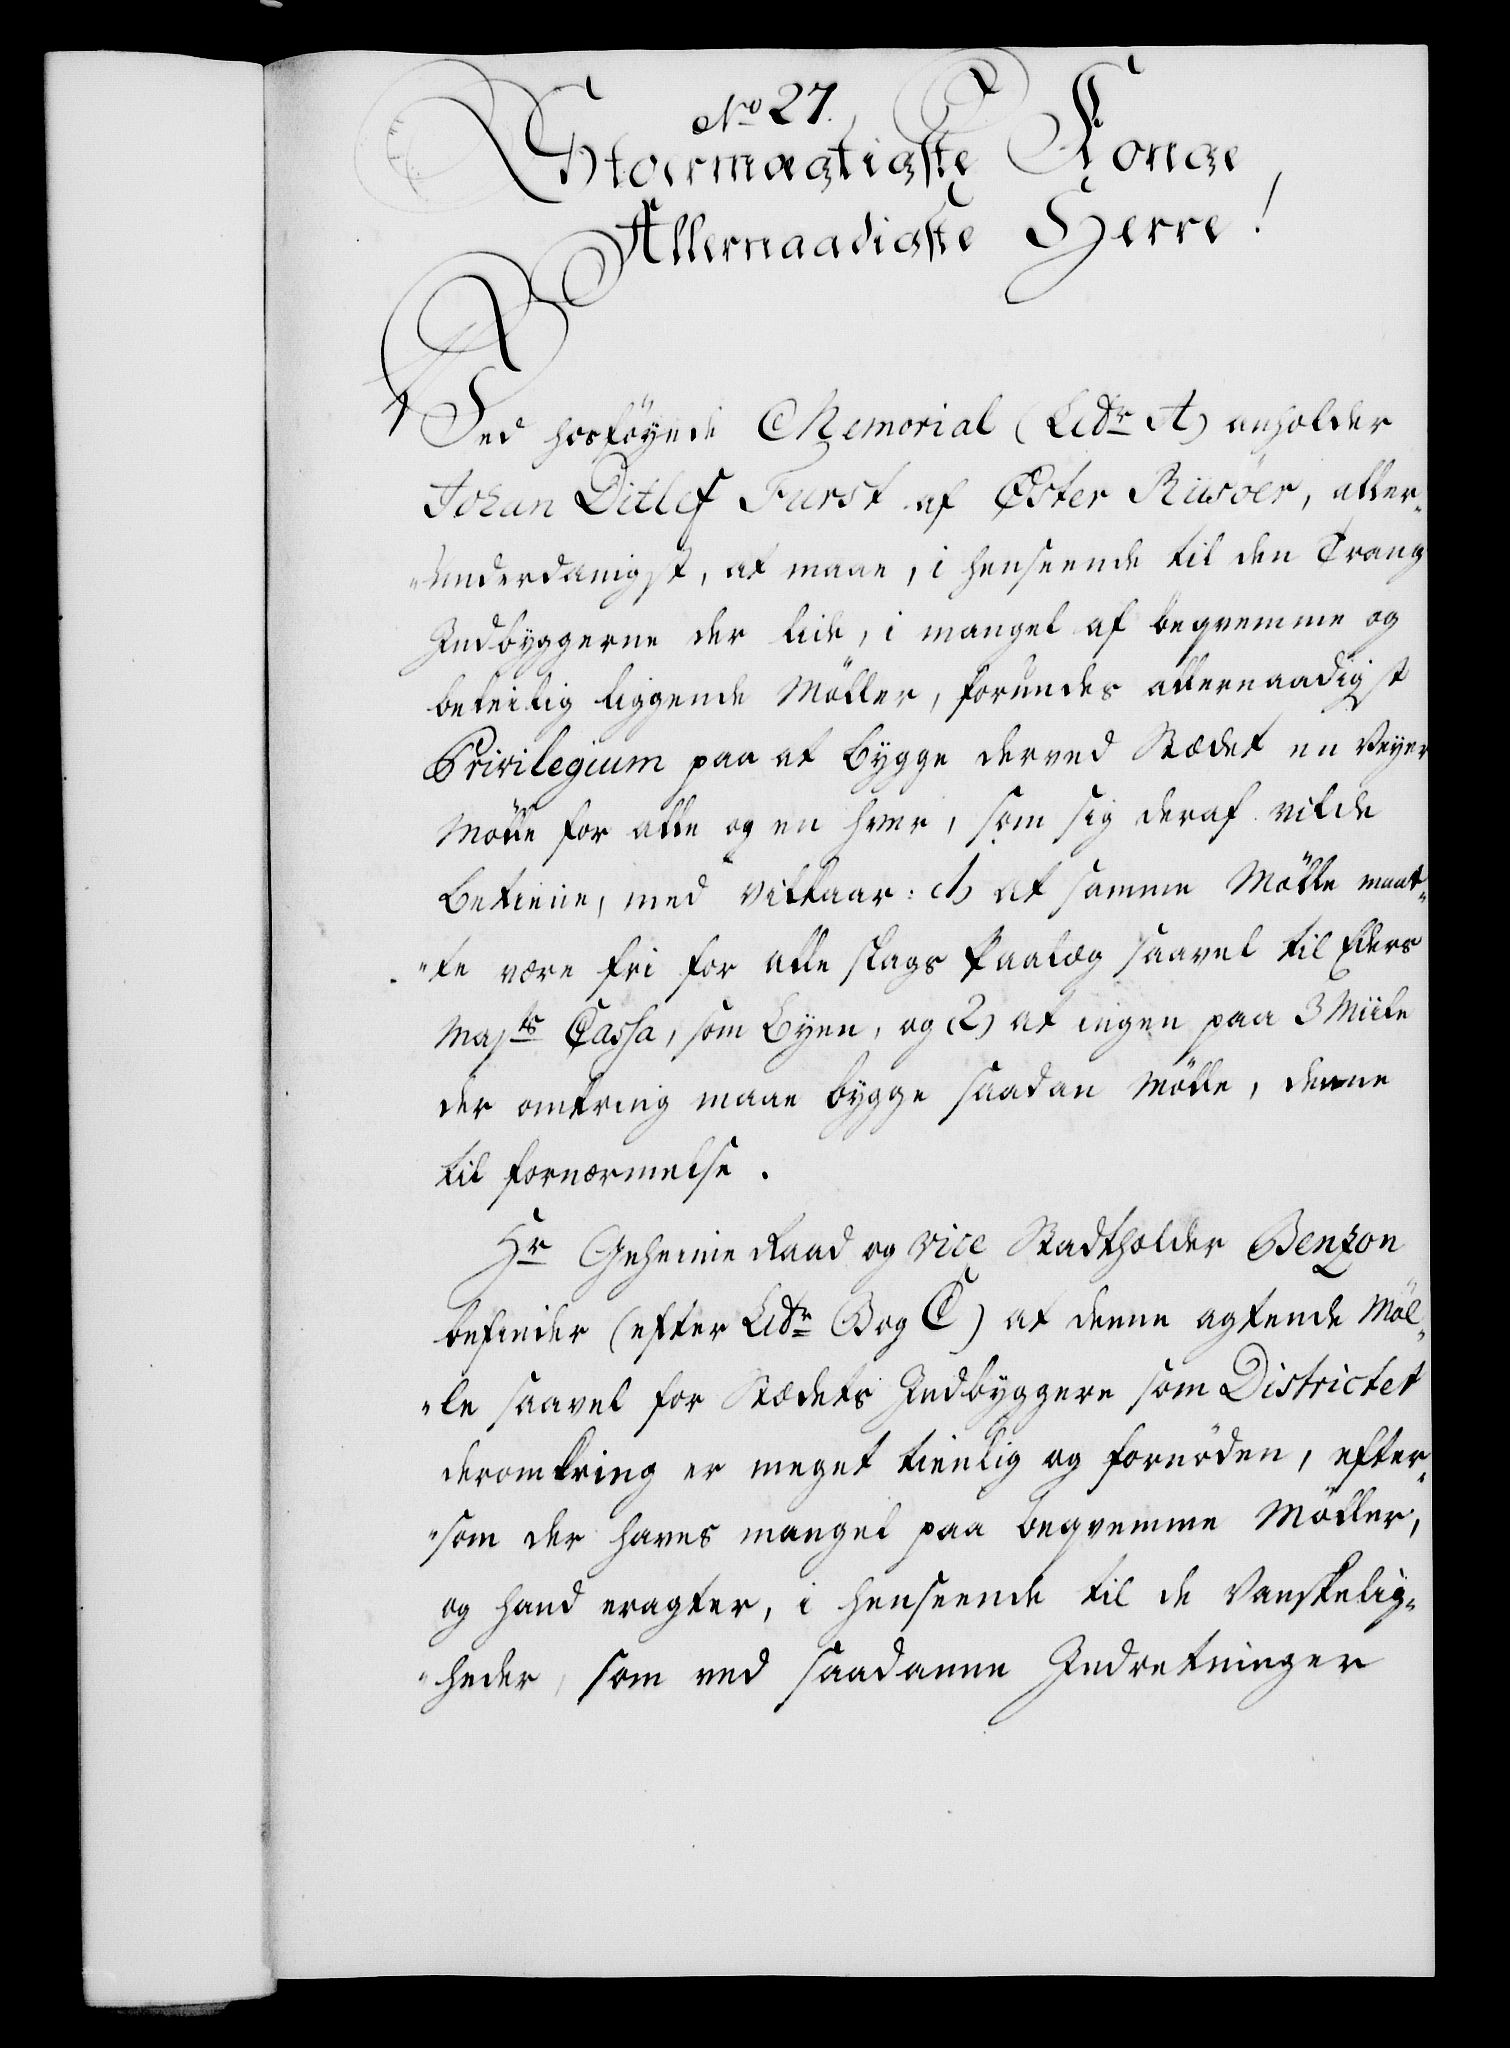 No 27.
Stoermægtigste Konge
Allernaadigste Herre!
Ved hosföyede Memorial (Litr A) anholder
Johan Ditlef Furst af Öster Riisöer, aller-
underdanigst, at maae, i henseende til den Trang
Indbyggerne der lide, i mangel af beqvemme og
beleilig liggende Möller, forundes allernaadigst
Privilegium paa at bygge derved Stædet en Veyer
Mölle for alle og en hver, som sig deraf vilde
betiene, med Vilkaar: 1) at samme Mölle maat-
te være fri for alle slags Paalæg saavel til Eders
Majts Cassa, som Byen, og 2) at ingen paa 3 Miile
der omkring maae bygge saadan Mölle, denne
til fornærmelse.
Hr Geheime Raad og Vice Stadtholder Benzon
befinder (efter Litr B og C) at denne agtende Möl-
le saavel for Stædets Indbyggere som Districtet
deromkring er meget tienlig og fornöden, efter-
som der haves mangel paa beqvemme Möller,
og hand eragter, i henseende til de Vanskelig-
heder, som ved saadanne Indretninger